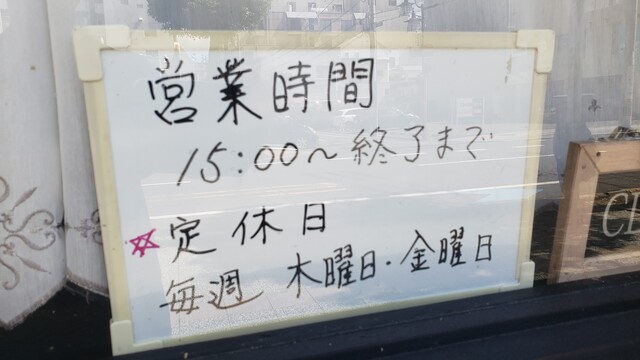 営業時間
15:00～終了まで
☆定休日
毎週 木曜日・金曜日